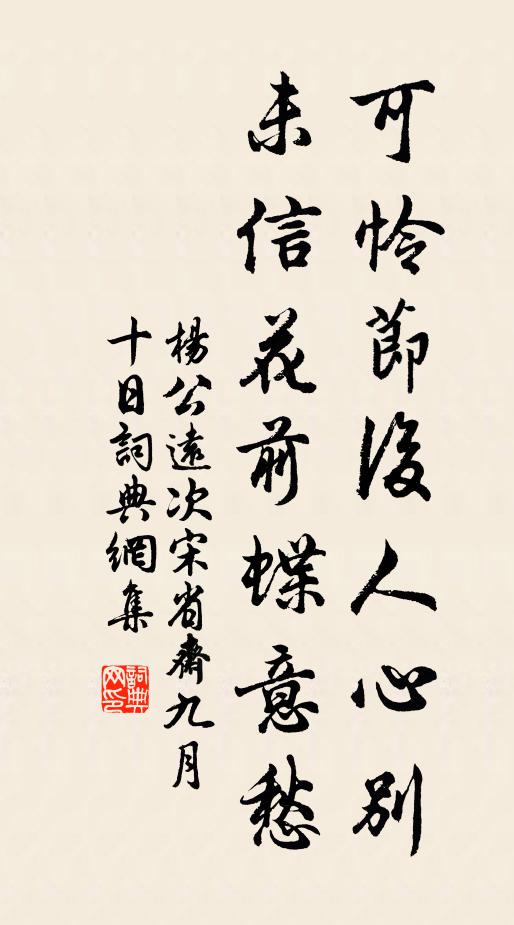 可怜節後人心別
未信花前蝶意愁
楊公遠次宋省齋九月
十日詞典網集
詞典
网印